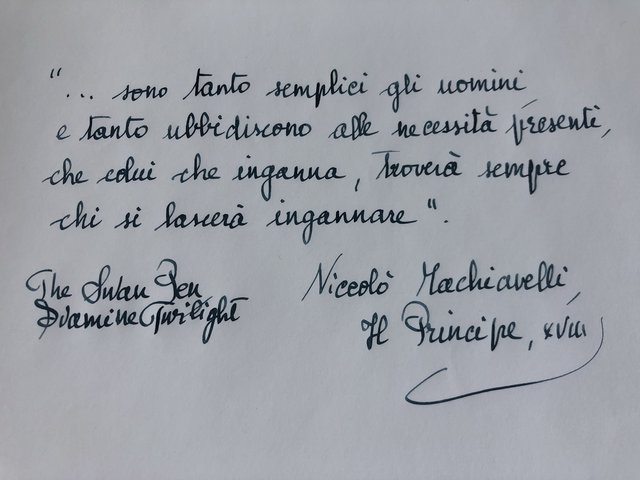 "... sono tanto semplici gli uomini,
e tanto ubbidiscono alle necessità presenti,
che colui che inganna, troverà sempre
chi si lascerà ingannare".
The Swan Pen
Diamine Twilight
Niccolò Machiavelli,
Il Principe, XVIII